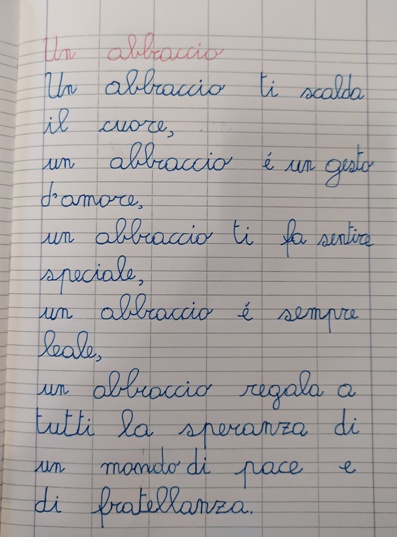 Un abbraccio
Un abbraccio ti scalda
il cuore,
un abbraccio é un gesto
d'amore,
un abbraccio ti fa sentire
speciale,
un abbraccio é sempre
leale,
un abbraccio regala a
tutti la speranza di
un mondo di pace e
di fratellanza.